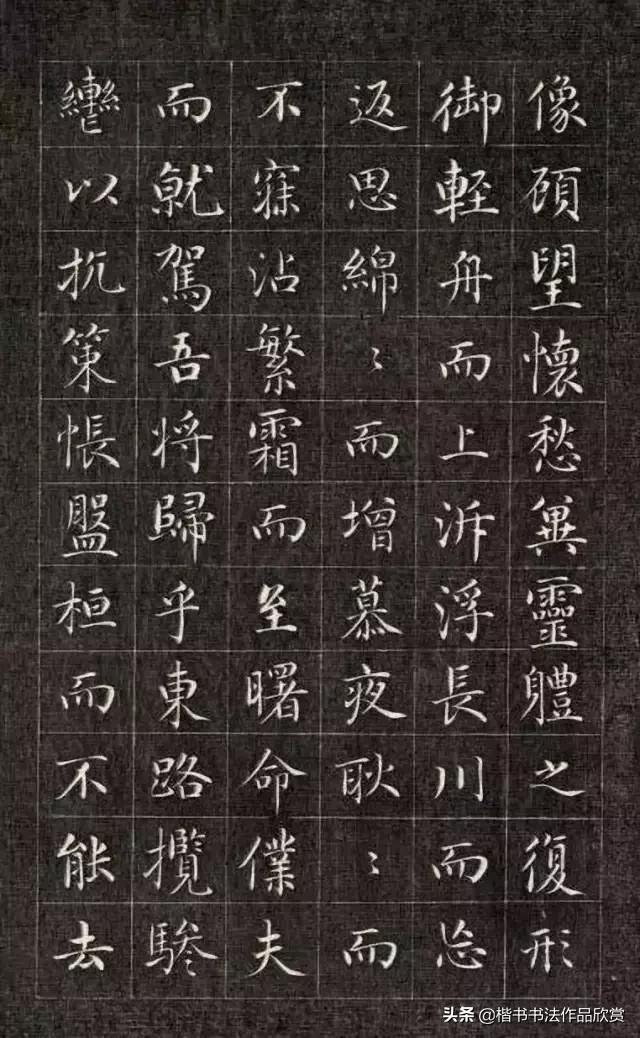 像頋望懷愁兾靈體之復形
御輕舟而上泝浮長川而忘
返思綿〻而增慕夜耿〻而
不寐沾繁霜而至曙命僕夫
而就駕吾将歸乎東路攬騑
轡以抗策悵盤桓而不能去
头条 @楷书书法作品欣赏